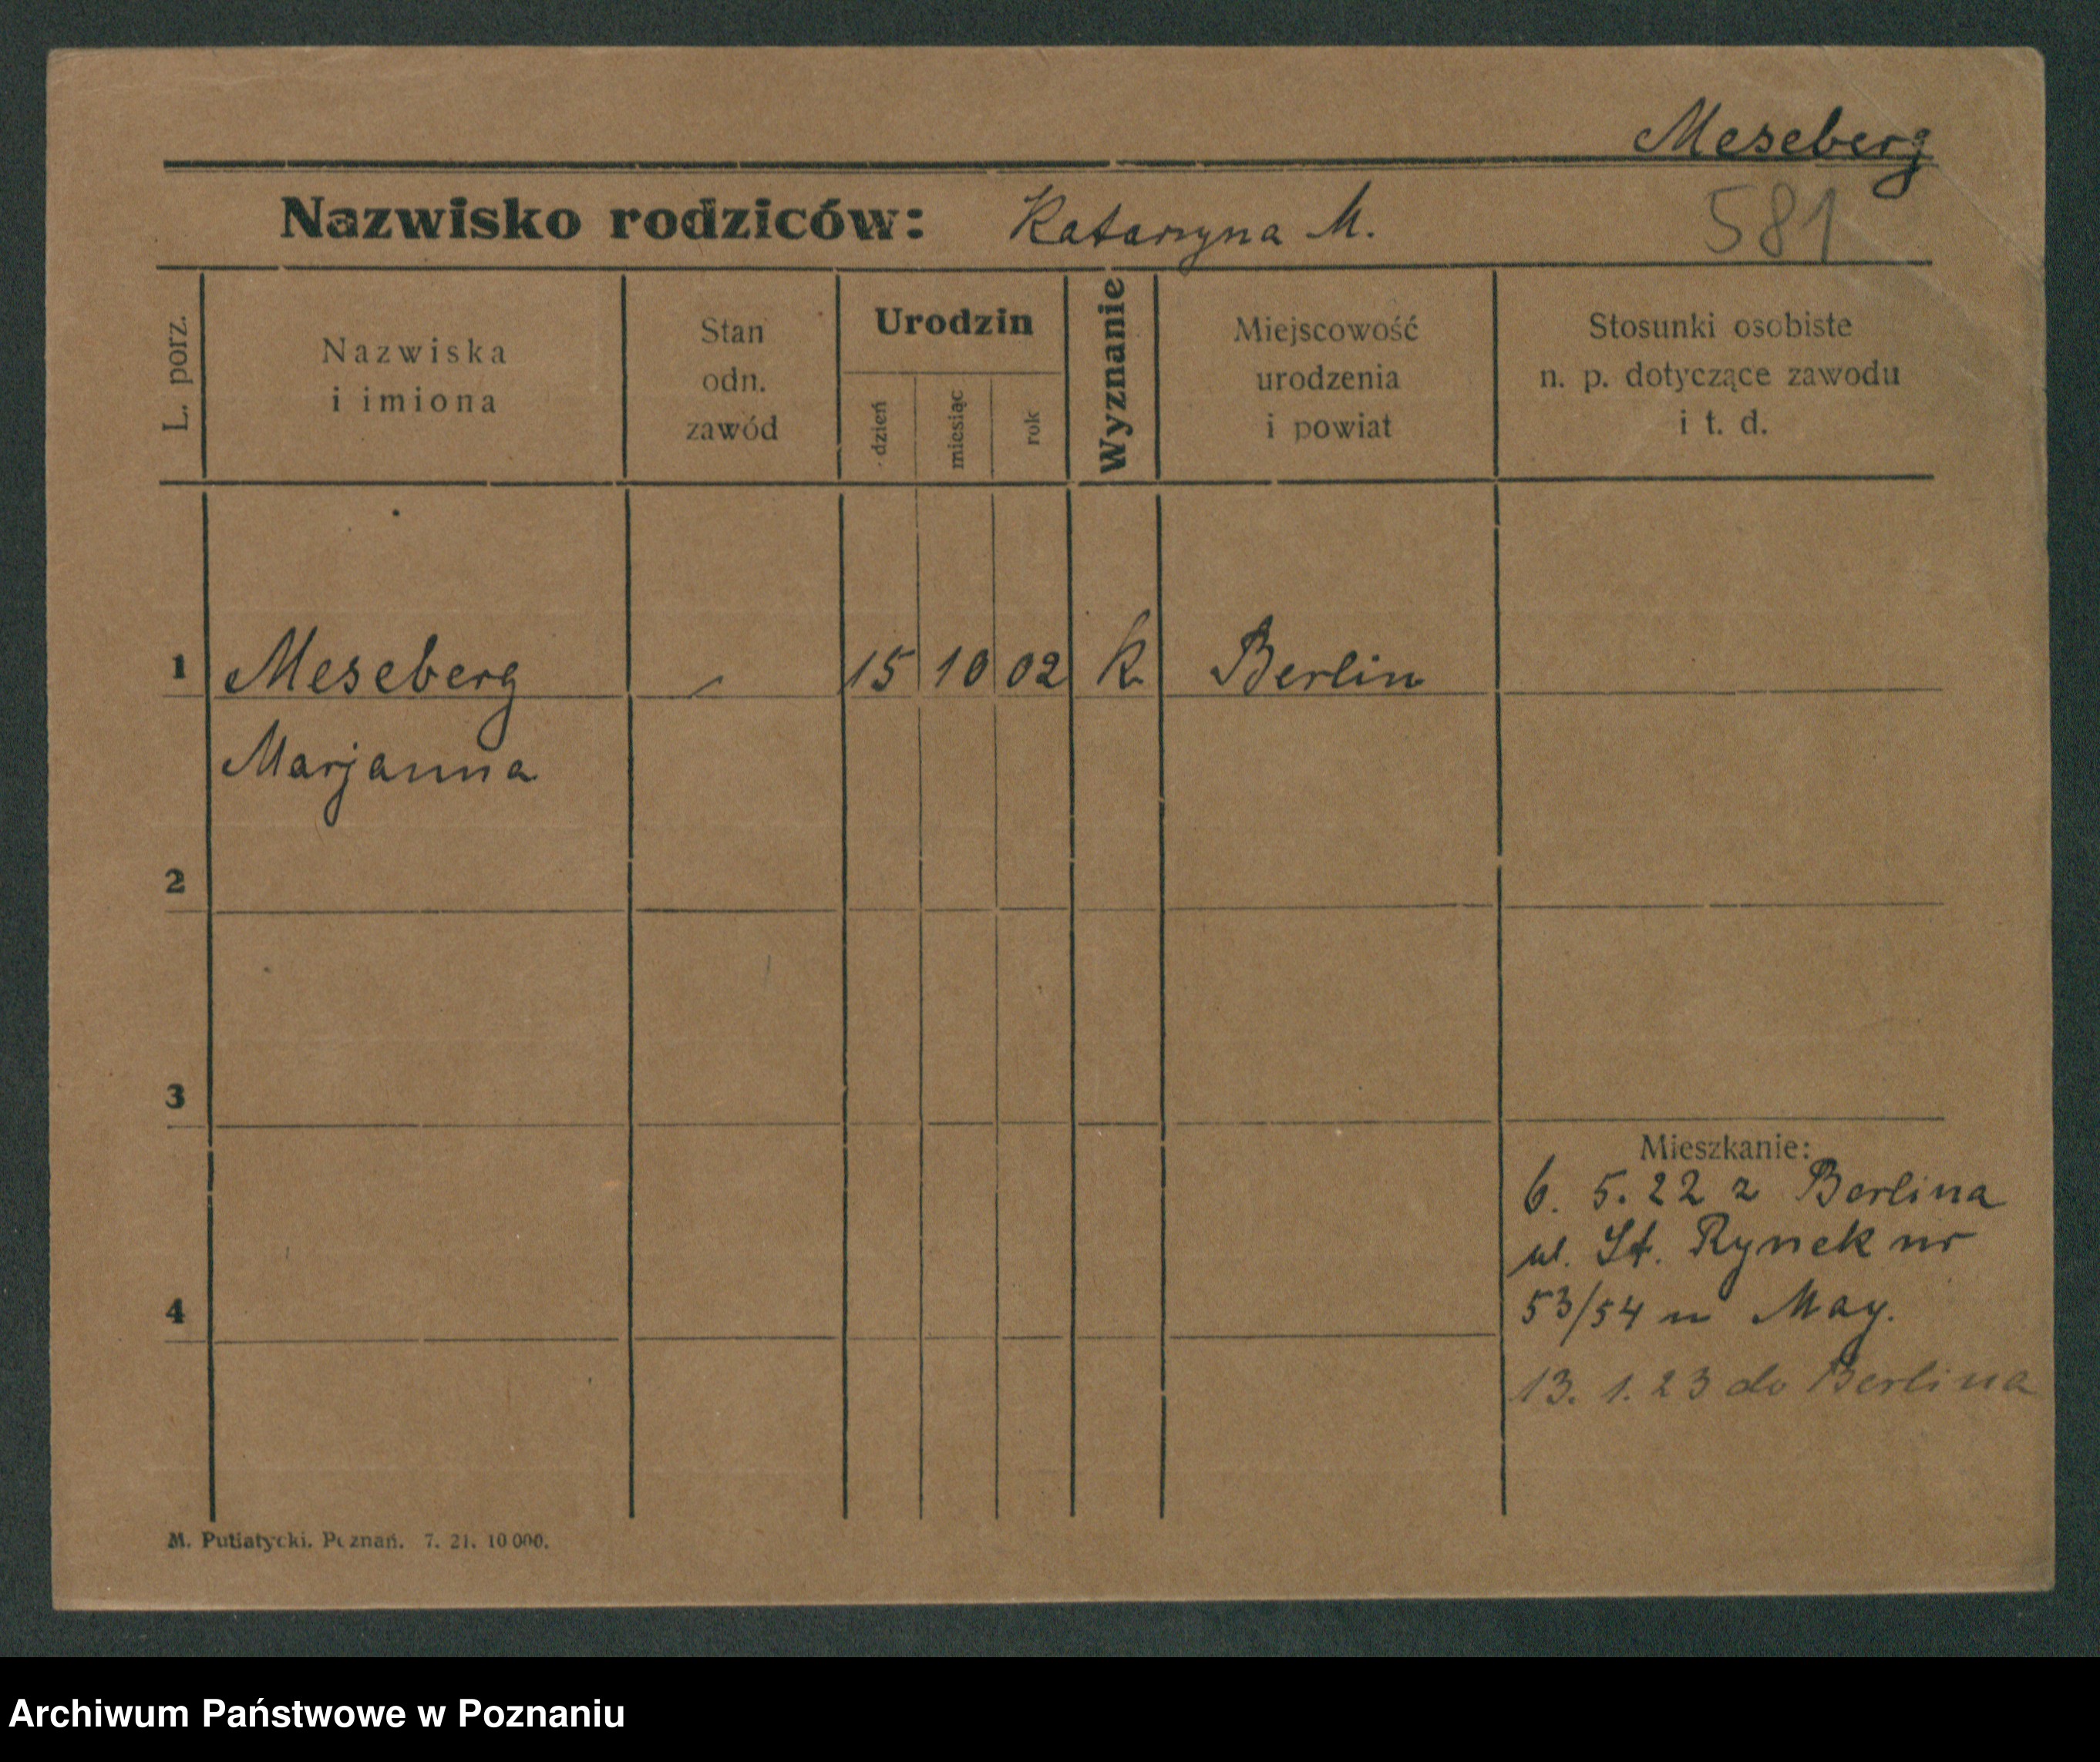 Meseberg
Nazwisko rodziców: Katarzyna M.
581
L. porz.
Nazwiska
i imiona
Stan
odn.
zawód
Urodzin
dzień
miesiąc
rok
Wyznanie
Miejscowość
urodzenia
i powiat
Stosunki osobiste
n. p. dotyczące zawodu
i t. d.
1 Meseberg 15 10 02 k Berlin
Marjanna
2
3
4
Mieszkanie:
6. 5. 22 z Berlina
ul. St. Rynek nr
53/54 u May.
13. 1. 23 do Berlina
M. Putiatycki. Poznań. 7. 21. 10 000.
Archiwum Państwowe w Poznaniu